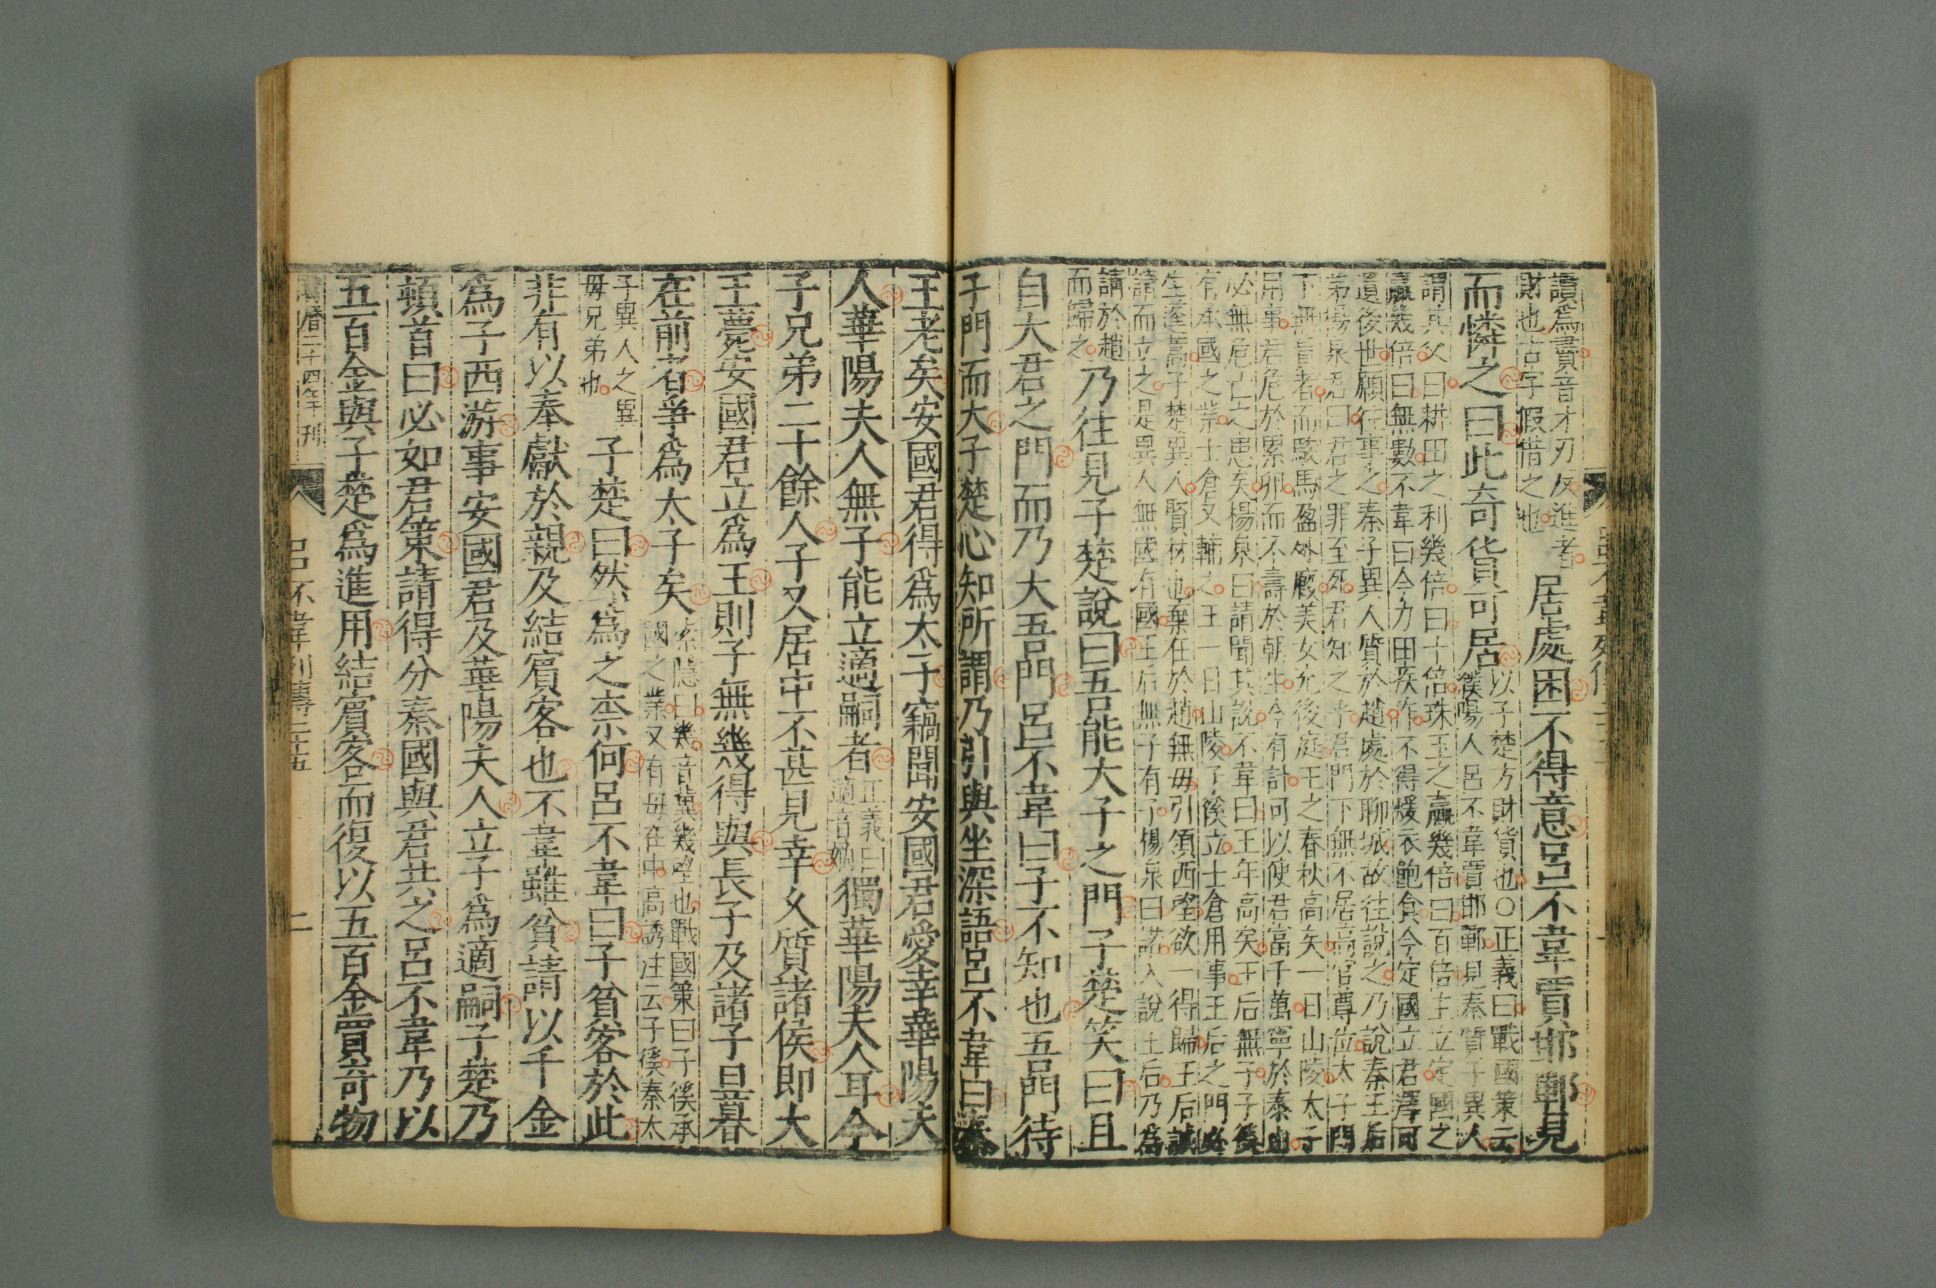 讀爲賮音才刃反進者
財也古字假借之也
居處困不得意呂不韋賈邯鄲見
而憐之曰此奇貨可居
以子楚方財貨也○正義曰戰國策云
濮陽人呂不韋賈邯鄲見秦質子異人
謂其父曰耕田之利幾倍曰十倍珠玉之贏幾倍曰百倍主立定國之
贏幾倍曰無數不韋曰今力田疾作不得煖衣飽食今定國立君澤可
遺後世願往事之秦子異人質於趙處於聊城故往說之乃說秦王后
弟陽泉君曰君之罪至死君知之乎君門下無不居高官尊位太子門
下無貴者而駿馬盈外廄美女充後庭王之春秋高矣一日山陵太子
用事君危於累卵而不壽於朝生今有計可以使君富千萬寧於泰山
必無危亡之患矣楊泉曰請聞其說不韋曰王年高矣王后無子子傒
有承國之業士倉又輔之王一日山陵子傒立士倉用事王后之門必
生蓬蒿子楚異人賢材也棄在於趙無母引領西望欲一得歸王后誠
請而立之是異人無國有國王后無子有子楊泉曰諾入說王后乃爲
請於趙
而歸之
乃往見子楚說曰吾能大子之門子楚笑曰且
自大君之門而乃大吾門呂不韋曰子不知也吾門待
子門而大子楚心知所謂乃引與坐深語呂不韋曰秦
王老矣安國君得爲太子竊聞安國君愛幸華陽夫
人華陽夫人無子能立適嗣者
正義曰
適音嫡
獨華陽夫人耳今
子兄弟二十餘人子又居中不甚見幸久質諸侯即大
王薨安國君立爲王則子無幾得與長子及諸子旦暮
在前者爭爲太子矣
索隱曰幾音冀幾望也戰國策曰子傒承
國之業又有母在中高誘注云子傒秦太
子異人之異
母兄弟也
子楚曰然爲之柰何呂不韋曰子貧客於此
非有以奉獻於親及結賓客也不韋雖貧請以千金
爲子西游事安國君及華陽夫人立子爲適嗣子楚乃
頓首曰必如君策請得分秦國與君共之呂不韋乃以
五百金與子楚爲進用結賓客而復以五百金買奇物
萬曆二十四年刊
呂不韋列傳二十五
二